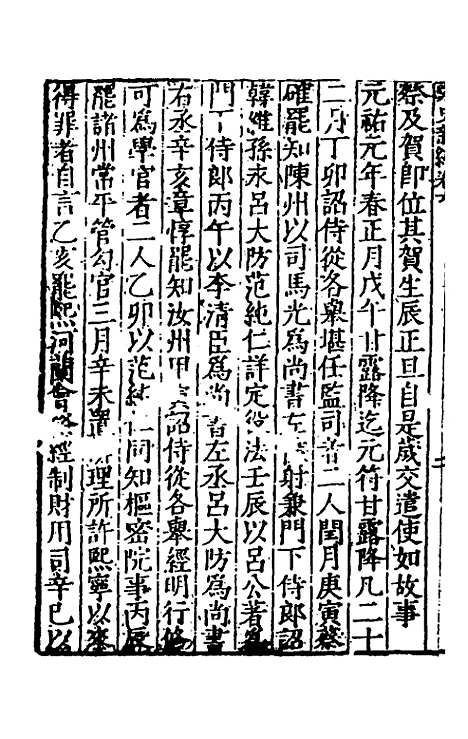 祭及賀即位其賀生辰正旦自是歲交遣使如故事
元祐元年春正月戊午甘露降迄元符甘露降凡二十
二月丁卯詔侍從各舉堪任監司者二人閏月庚寅蔡
確罷知陳州以司馬光為尚書左射兼門下侍郎詔
韓維孫永呂大防范純仁詳定役法壬辰以呂公著為
門下侍郎丙午以李清臣為尚書左丞呂大防為尚書
右丞辛亥章惇罷知汝州甲寅詔侍從各舉經明行修
可為學官者二人乙卯以范純仁同知樞密院事丙辰
罷諸州常平管勾官三月辛未置理所許熙寧以來
得罪者自言乙亥罷熙河蘭會路經制財用司辛巳以